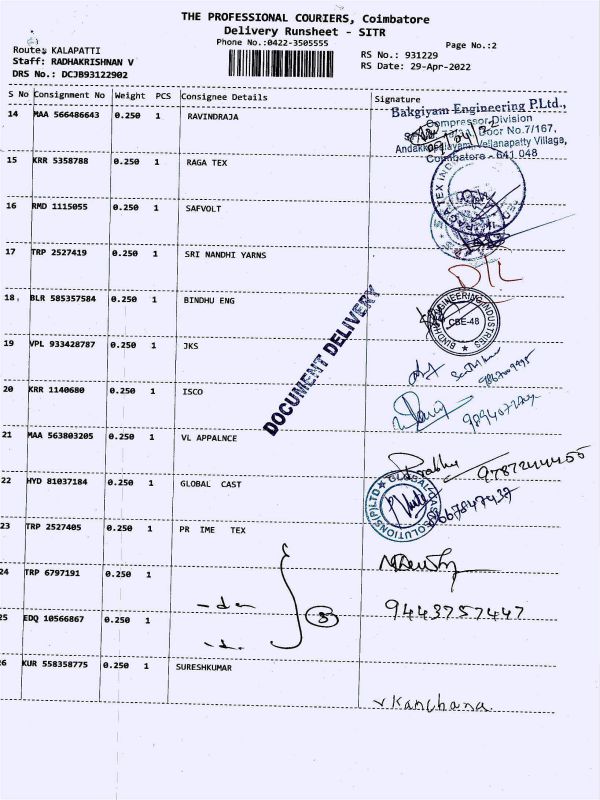 THE PROFESSIONAL COURIERS, Coimbatore
Delivery Runsheet - SITR
Phone No.:0422-3505555
Page No.:2
Route: KALAPATTI
Staff: RADHAKRISHNAN V
DRS No.: DCJB93122902
RS No.: 931229
RS Date: 29-Apr-2022
S No Consignment No Weight PCS Consignee Details Signature
14 MAA 566486643 0.250 1 RAVINDRAJA
Bakgiyam Engineering P.Ltd.,
Compressor Division
Door No.7/167,
Vellanapatty Village,
Coimbatore - 641 048
15 KRR 5358788 0.250 1 RAGA TEX
16 RMD 1115055 0.250 1 SAFVOLT
17 TRP 2527419 0.250 1 SRI NANDHI YARNS
D/L
18 BLR 585357584 0.250 1 BINDHU ENG
BINDHU ENGINEERING INDUSTRIES
CBE-48
DOCUMENT DELIVERY
19 VPL 933428787 0.250 1 JKS
20 KRR 1140680 0.250 1 ISCO
21 MAA 563803205 0.250 1 VL APPALNCE
Prabhu
22 HYD 81037184 0.250 1 GLOBAL CAST
GLOBAL CAST SOLUTIONS(P)LTD
23 TRP 2527405 0.250 1 PR IME TEX
24 TRP 6797191 0.250 1
- do
3
9443757447
25 EDQ 10566867 0.250 1
26 KUR 558358775 0.250 1 SURESHKUMAR
V.Kanchana